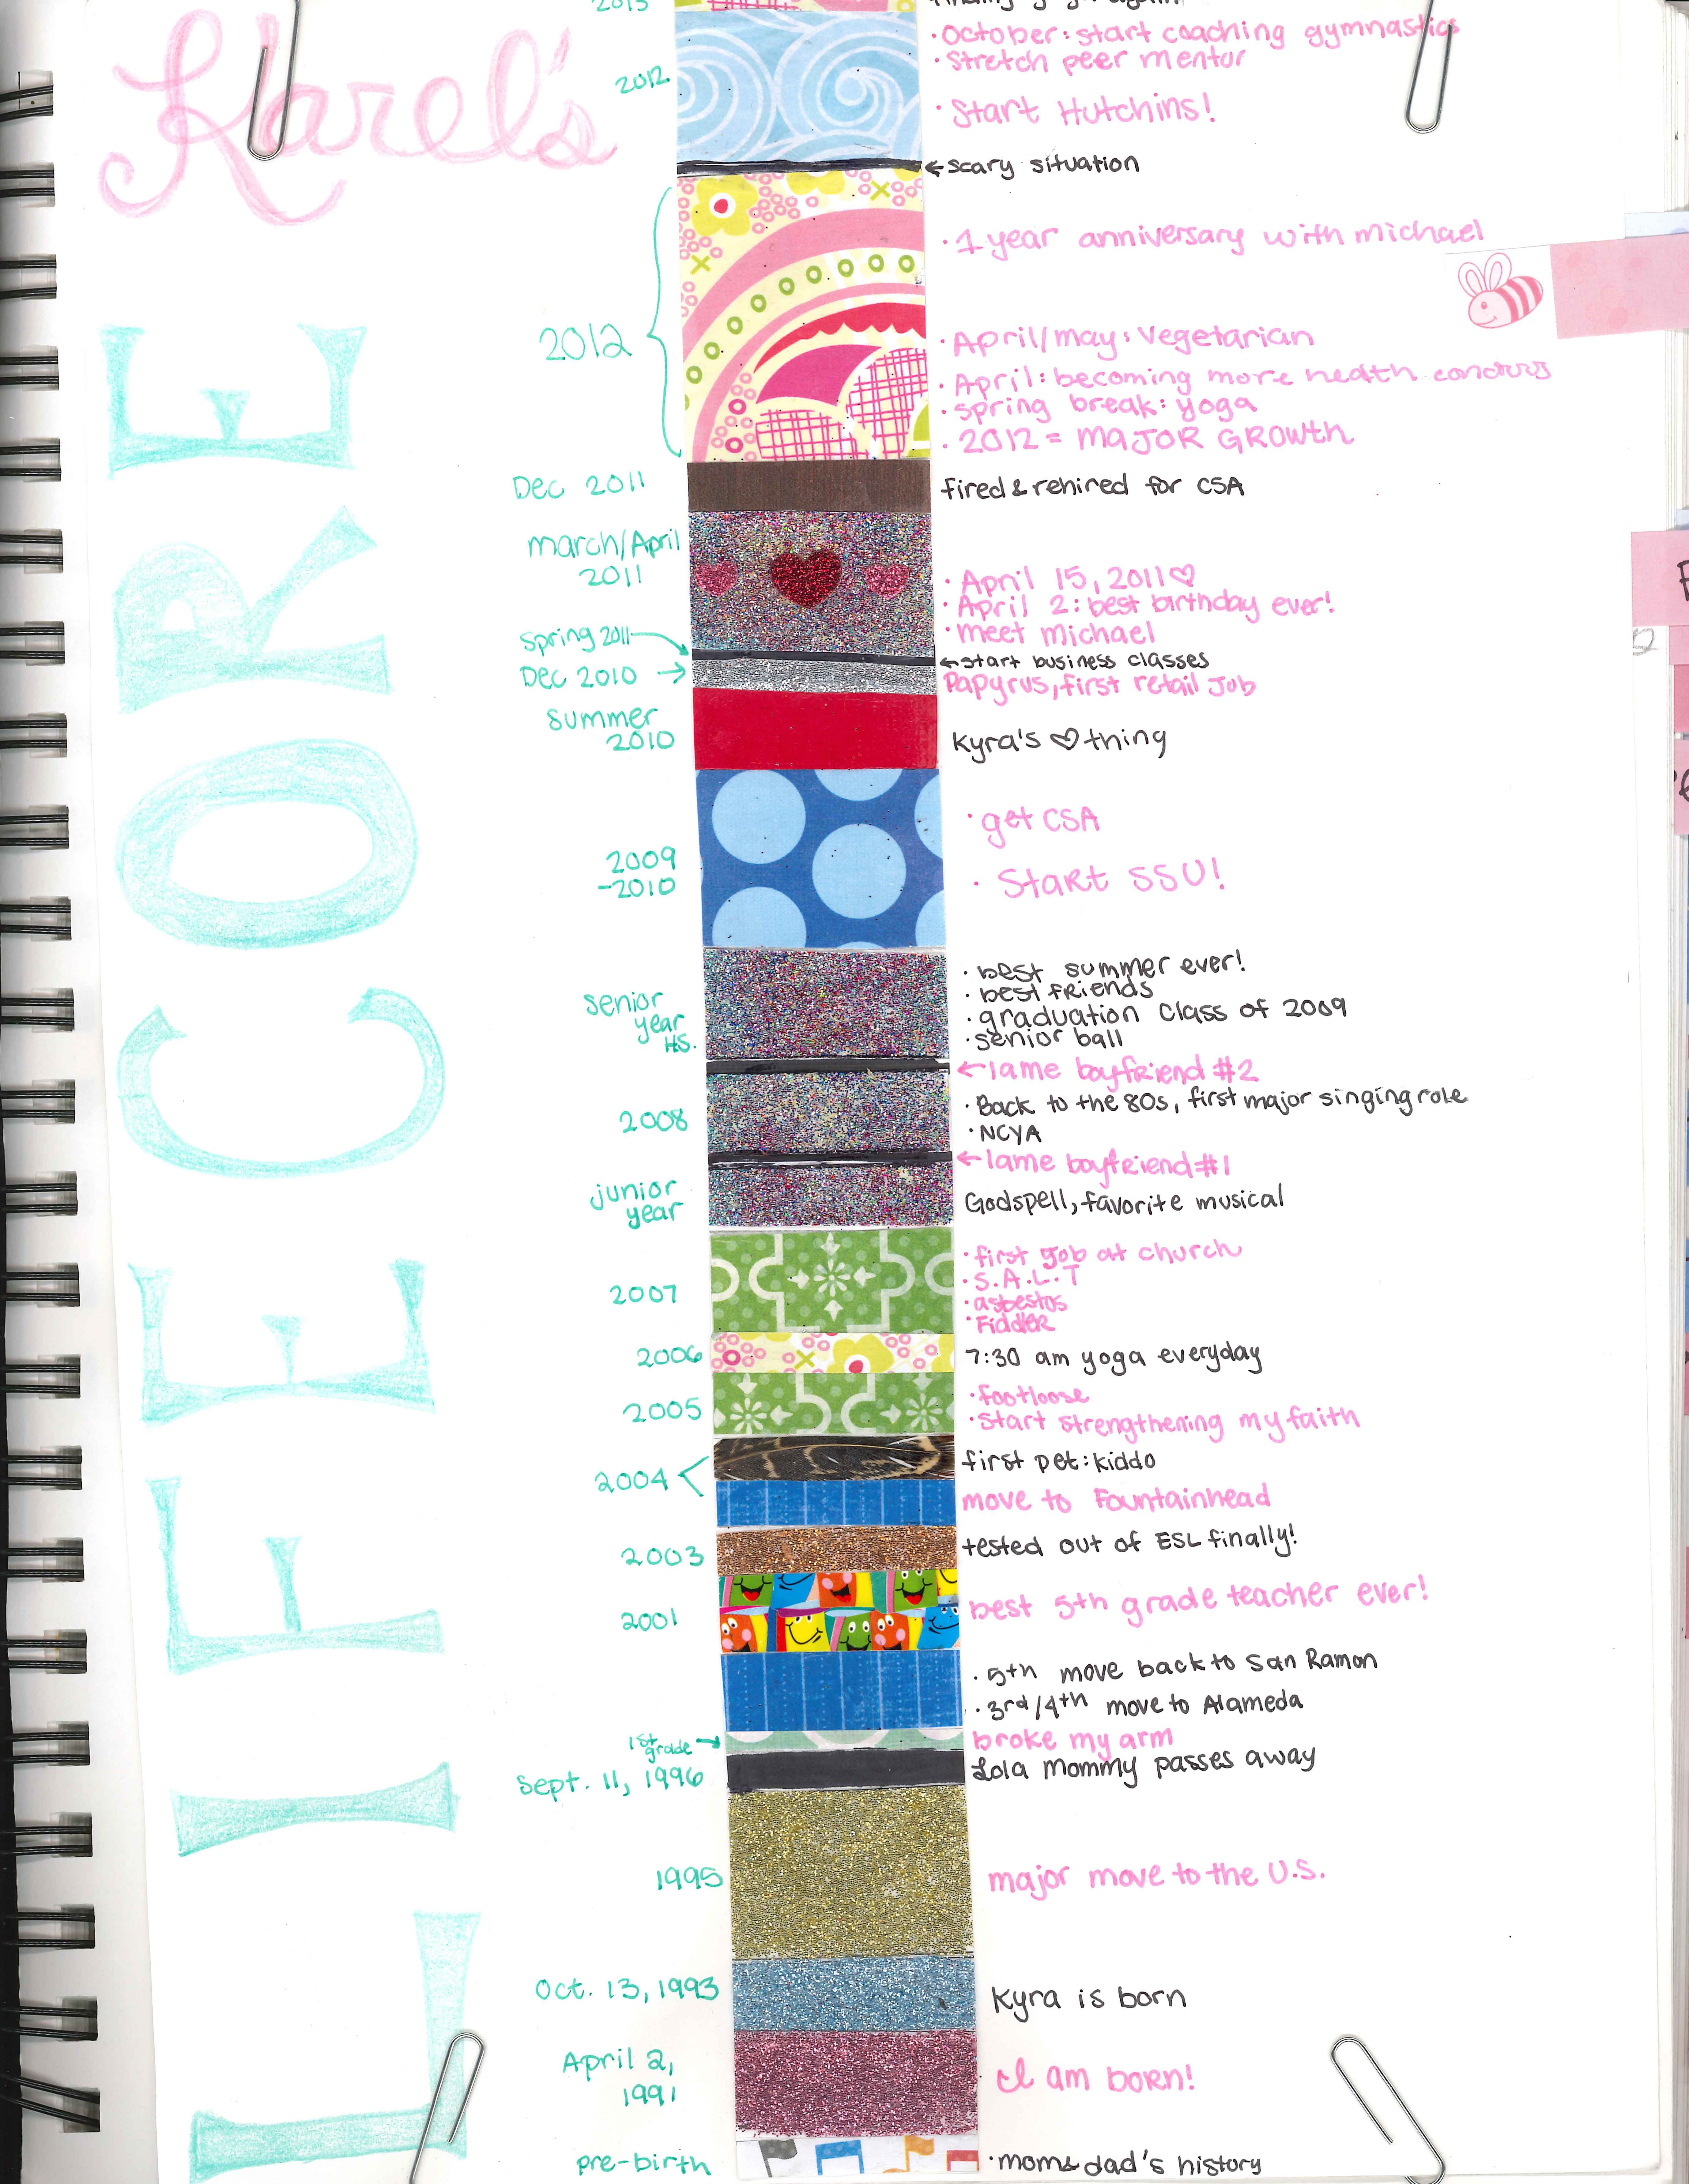 2013
October: start coaching gymnastics
Stretch peer mentor
2012
Start Hutchins!
Karel's
←scary situation
1 year anniversary with michael
2012
April/may: Vegetarian
April: becoming more health
spring break: yoga
2012 = MAJOR GROWTH
Dec 2011
fired & rehired for CSA
march/April
2011
April 15, 2011♡
April 2: best birthday ever!
meet michael
spring 2011
←start business classes
Dec 2010 →
Papyrus, first retail Job
summer
2010
Kyra's ♡ thing
get CSA
2009
-2010
Start SSU!
best summer ever!
best friends
senior
year
HS.
graduation Class of 2009
senior ball
←lame boyfriend #2
Back to the 80s, first major singing role
2008
NCYA
←lame boyfriend #1
junior
year
Godspell, favorite musical
first job at church
S.A.L.T
2007
asbestos
Fiddler
2006
7:30 am yoga everyday
footloose
2005
start strengthening my faith
first pet: kiddo
2004
move to Fountainhead
2003
tested out of ESL finally!
2001
best 5th grade teacher ever!
5th move back to San Ramon
3rd/4th move to Alameda
1st
grade →
broke my arm
Sept. 11, 1996
Lola Mommy passes away
1995
major move to the U.S.
Oct. 13, 1993
Kyra is born
April 2,
1991
I am born!
pre-birth
mom & dad's history
LIFE CORE